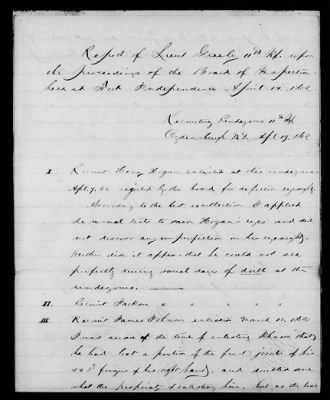 Report of Lieut Greeley 11th Inf. upon
the proceedings of the Board of Inspection
held at Fort Independence April 12, 1862
Recruiting Rendezvous 11th Inf
Ogdensburgh N.Y. Apl 19, 1862
I. Recruit Henry Hogan enlisted at this rendezvous
Apl 7, 62 rejected by the board for defective eyesight.
According to the best recollection I applied
the usual tests to said Hogan's eyes and did
not discover any imperfection in his eyesight,
neither did it appear that he could not see
perfectly during several days of drill at the
rendezvous.
II. Recruit Jackson " " " "
III. Recruit James Johnson enlisted March 12, 1862
I was aware at the time of enlisting Johnson that
he had lost a portion of the first joints of his
fingers of his right hand, and doubted some
what the propriety of enlisting him, but as the loss